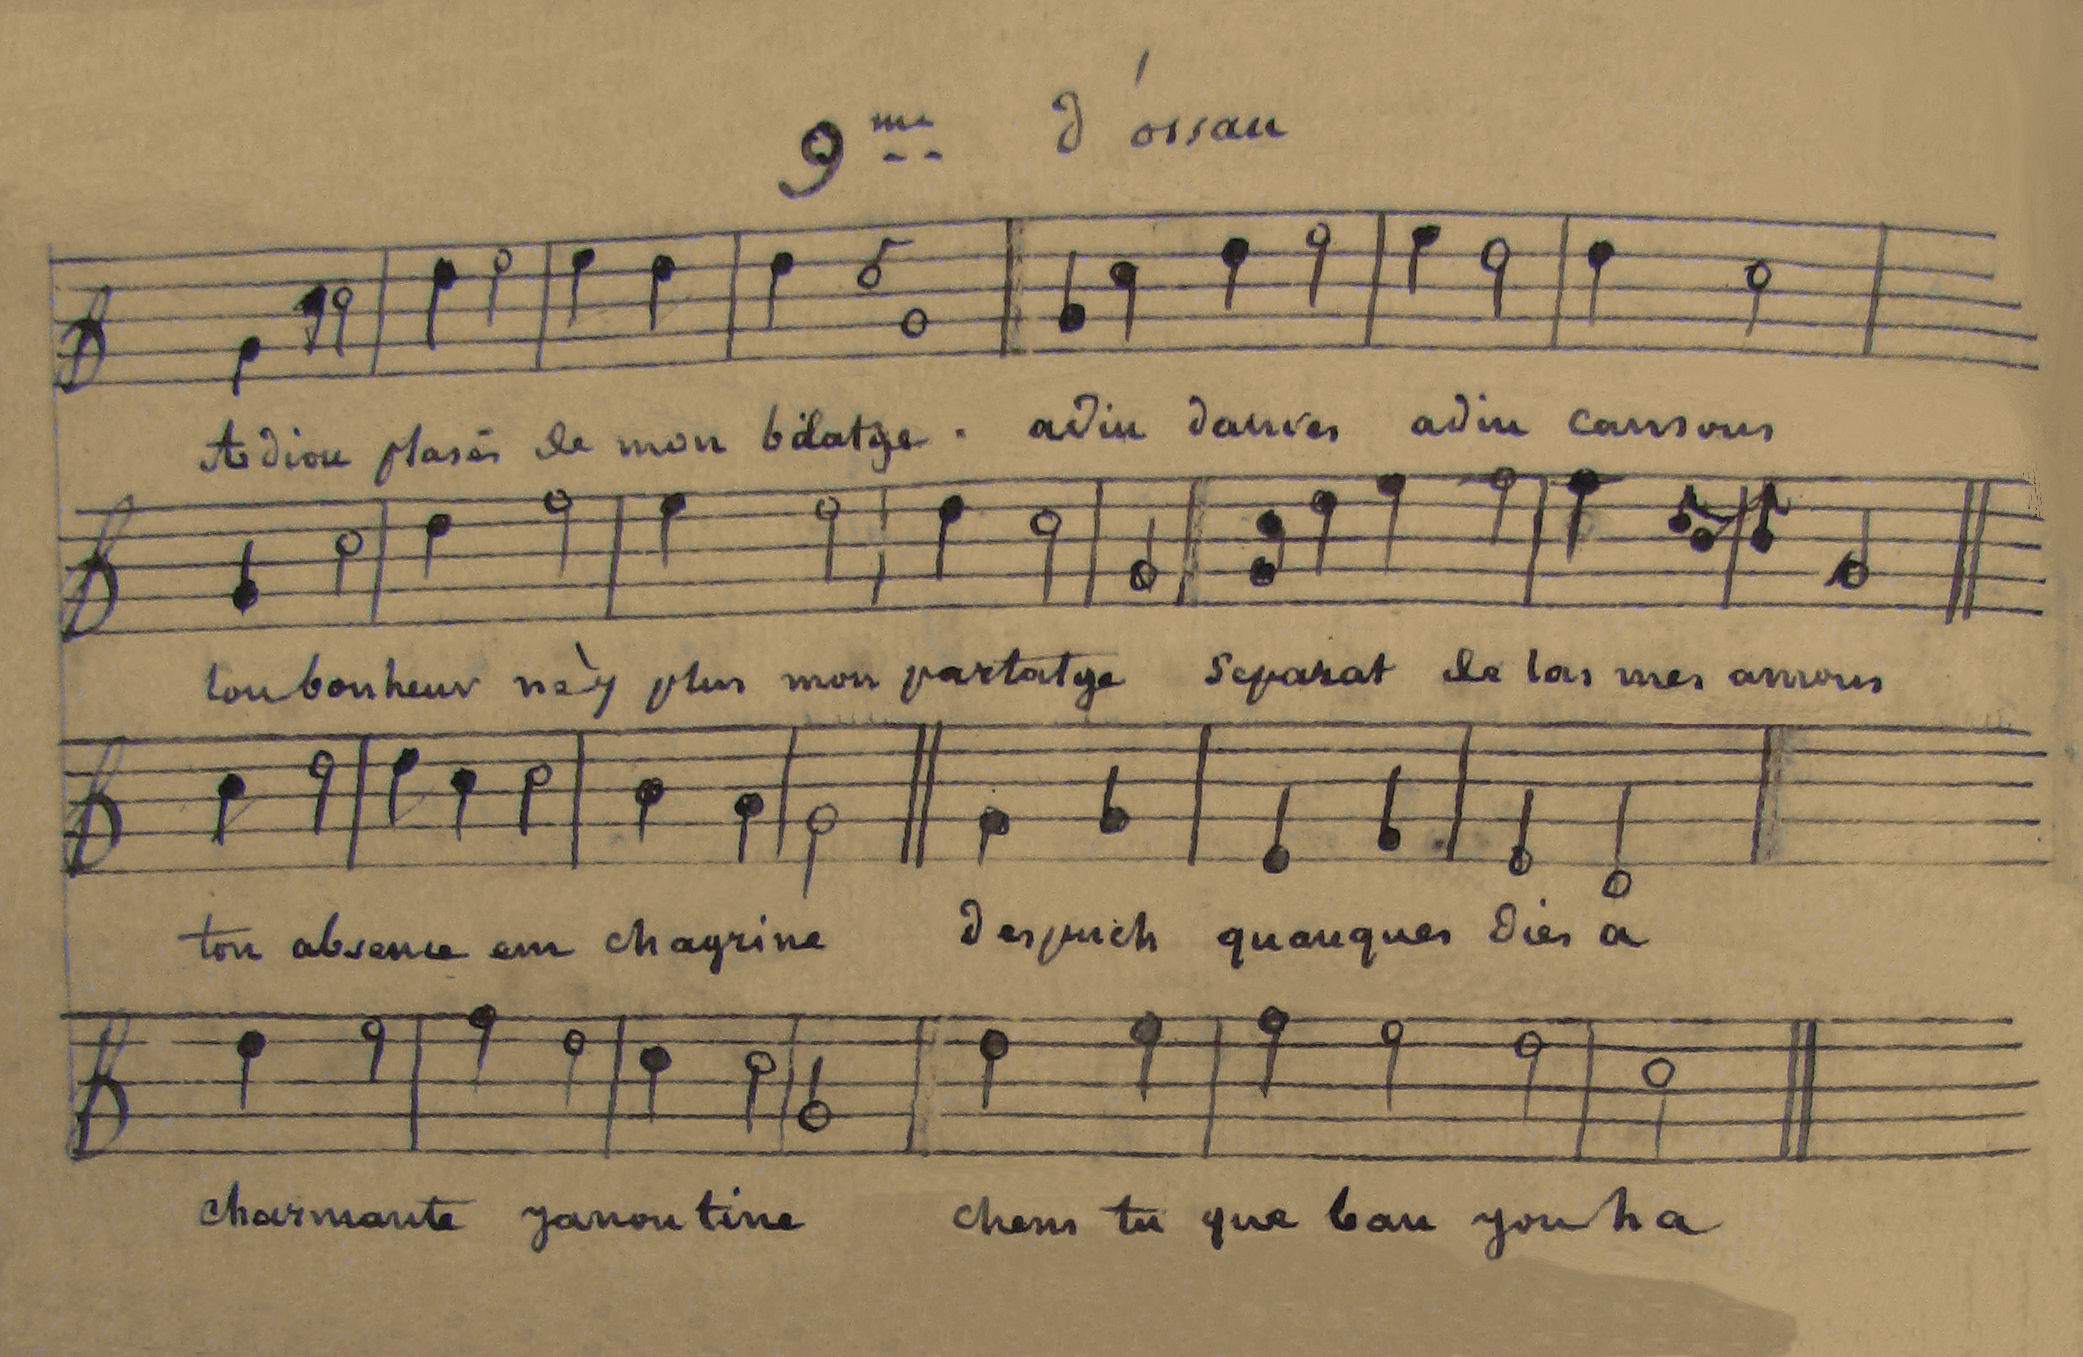 9me d'ossau
Adiou plasés de mon bilatge. adiu danses adiu cansous
lou bonheur n'èy plus mon partatge separat de las mes amous
ton absence em chagrine despuch quauques dies a
charmante yanoutine chens tu que bau you ha